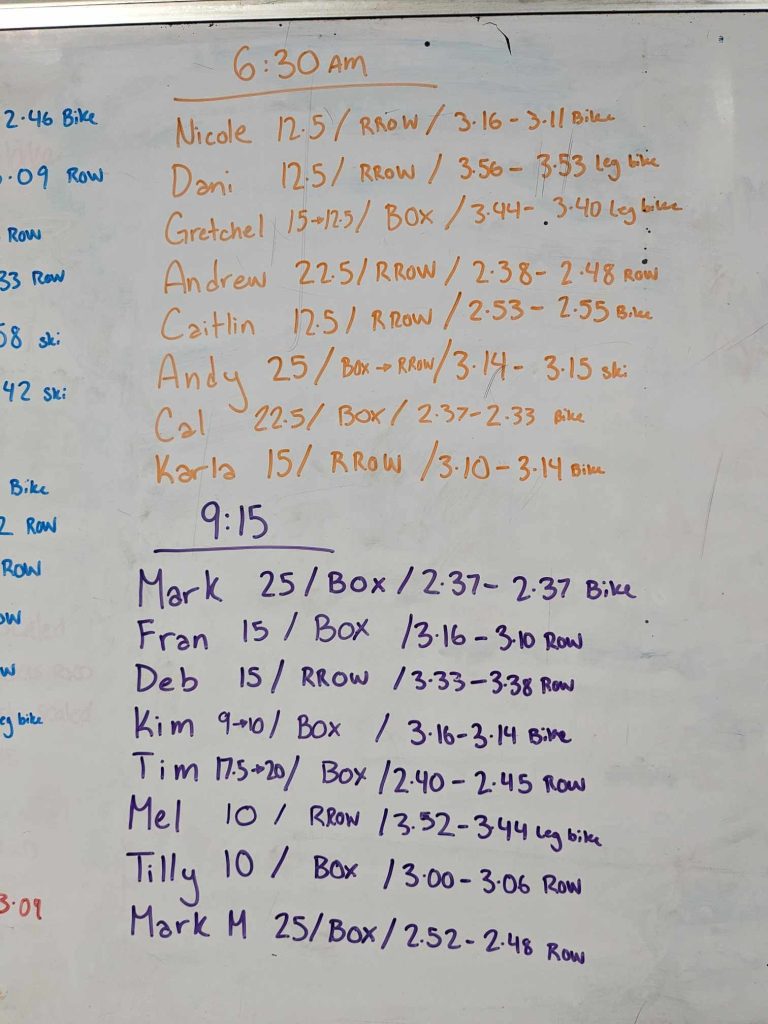 2.46 Bike
.09 Row
Row
33 Row
58 ski
42 ski
Bike
2 Row
Row
leg bike
3.09
6:30 AM
Nicole 12.5 / RROW / 3.16 - 3.11 Bike
Dani 12.5 / RROW / 3.56 - 3.53 leg bike
Gretchel 15→12.5 / BOX / 3.44 - 3.40 leg bike
Andrew 22.5 / RROW / 2.38 - 2.48 Row
Caitlin 12.5 / RROW / 2.53 - 2.55 Bike
Andy 25 / Box → RROW / 3.14 - 3.15 ski
Cal 22.5 / BOX / 2.37 - 2.33 Bike
Karla 15 / RROW / 3.10 - 3.14 Bike
9:15
Mark 25 / BOX / 2.37 - 2.37 Bike
Fran 15 / BOX / 3.16 - 3.10 Row
Deb 15 / RROW / 3.33 - 3.38 Row
Kim 9→10 / BOX / 3.16 - 3.14 Bike
Tim 17.5→20 / BOX / 2.40 - 2.45 Row
Mel 10 / RROW / 3.52 - 3.44 leg bike
Tilly 10 / BOX / 3.00 - 3.06 Row
Mark M 25 / BOX / 2.52 - 2.48 Row